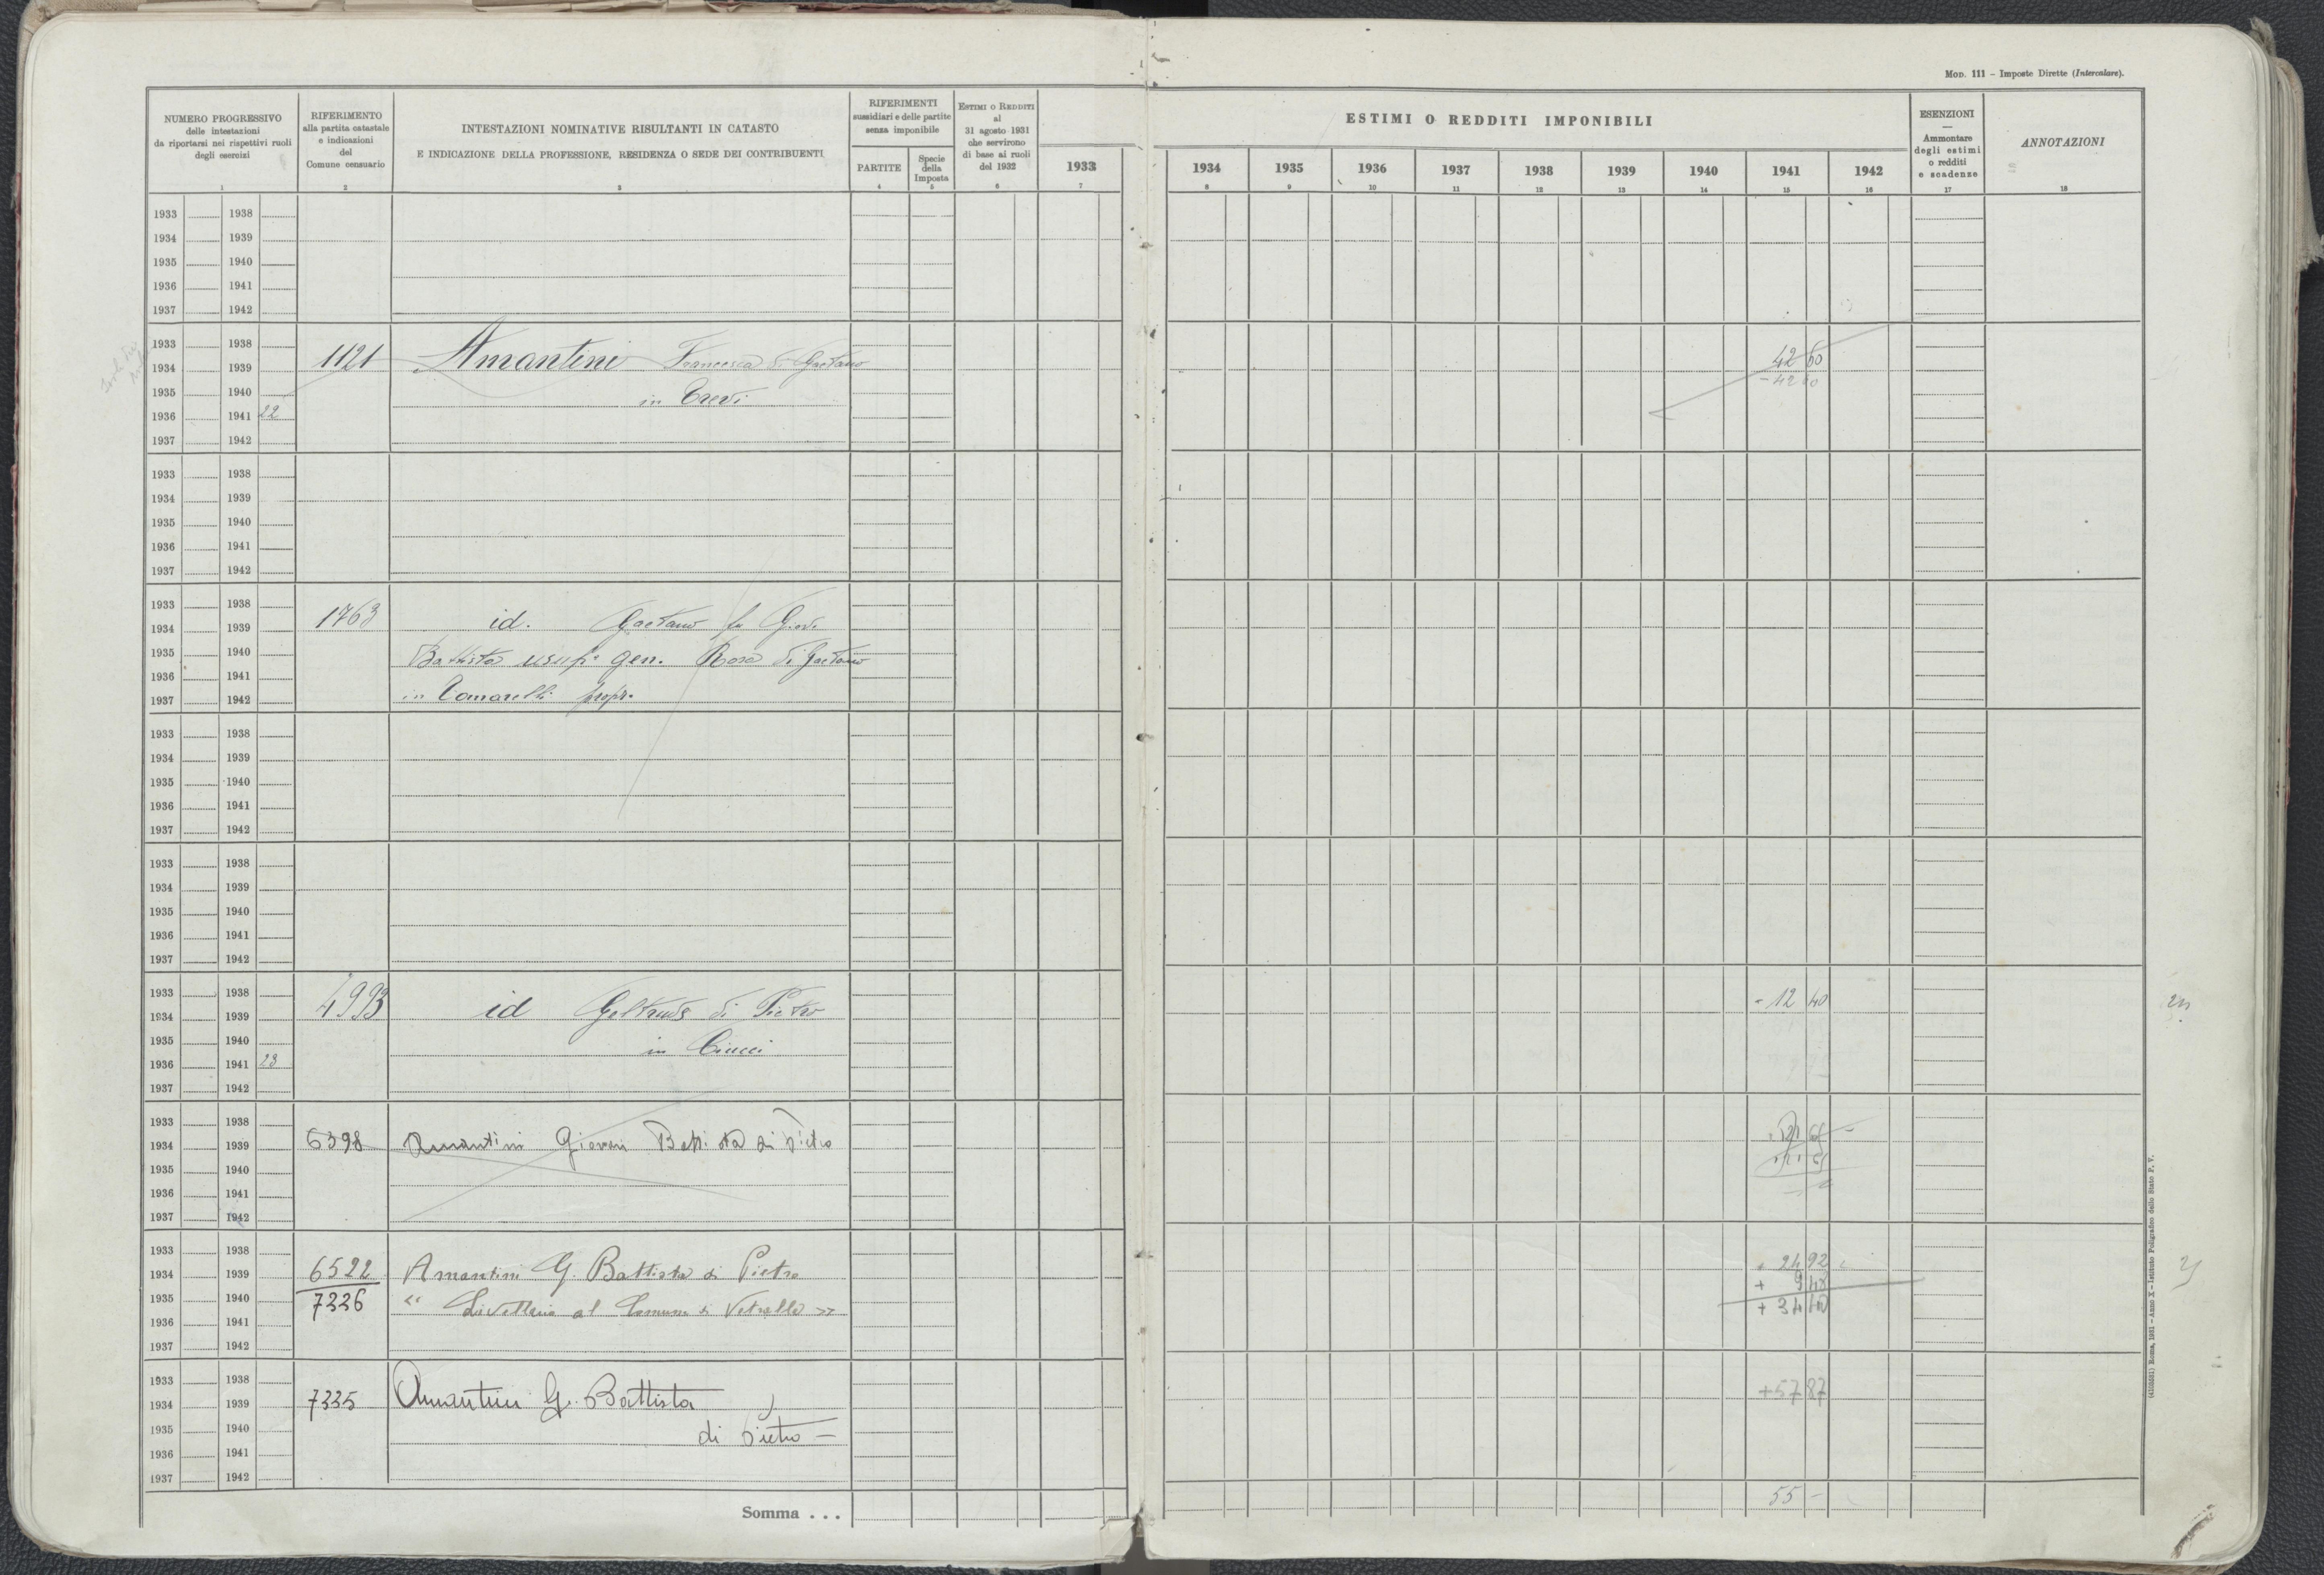 MOD. 111 – Imposte Dirette (Intercalare).
NUMERO PROGRESSIVO
delle intestazioni
da riportarsi nei rispettivi ruoli
degli esercizi
1
RIFERIMENTO
alla partita catastale
e indicazioni
del
Comune censuario
2
INTESTAZIONI NOMINATIVE RISULTANTI IN CATASTO
E INDICAZIONE DELLA PROFESSIONE, RESIDENZA O SEDE DEI CONTRIBUENTI
3
RIFERIMENTI
sussidiari e delle partite
senza imponibile
PARTITE
4
Specie
della
Imposta
5
ESTIMI O REDDITI
al
31 agosto 1931
che servirono
di base ai ruoli
del 1932
6
ESTIMI O REDDITI IMPONIBILI
1933 1934 1935 1936 1937 1938 1939 1940 1941 1942
7 8 9 10 11 12 13 14 15 16
ESENZIONI
—
Ammontare
degli estimi
o redditi
e scadenze
17
ANNOTAZIONI
18
1933 1938
1934 1939
1935 1940
1936 1941
1937 1942
1933 1938
1934 1939 1121 Amantini Francesca di Gaetano 42 60
1935 1940 in Trevi - 42 60
1936 1941 22
1937 1942
1933 1938
1934 1939
1935 1940
1936 1941
1937 1942
1933 1938
1934 1939 1763 id. Gaetano fu Giov.
1935 1940 Battista usuf. gen. Rosa di Gaetano
1936 1941
1937 1942 in propr.
1933 1938
1934 1939
1935 1940
1936 1941
1937 1942
1933 1938
1934 1939
1935 1940
1936 1941
1937 1942
1933 1938
1934 1939 4993 id Geltrude di Pietro 12 40
1935 1940 in Ciucci
1936 1941 23
1937 1942
1933 1938
1934 1939 6398 Amantini Giovan Battista di Pietro
1935 1940
1936 1941
1937 1942
1933 1938
1934 1939 6522 Amantini G. Battista di Pietro 24 92
1935 1940 7226 " Livellario al Comune di Vetralla » + 9 48
+ 34 40
1936 1941
1937 1942
1933 1938
1934 1939 7335 Amantini G. Battista + 57 87
1935 1940 di Pietro —
1936 1941
1937 1942
Somma . . . 55 –
(4103531) Roma, 1931 – Anno X – Istituto Poligrafico dello Stato P. V.